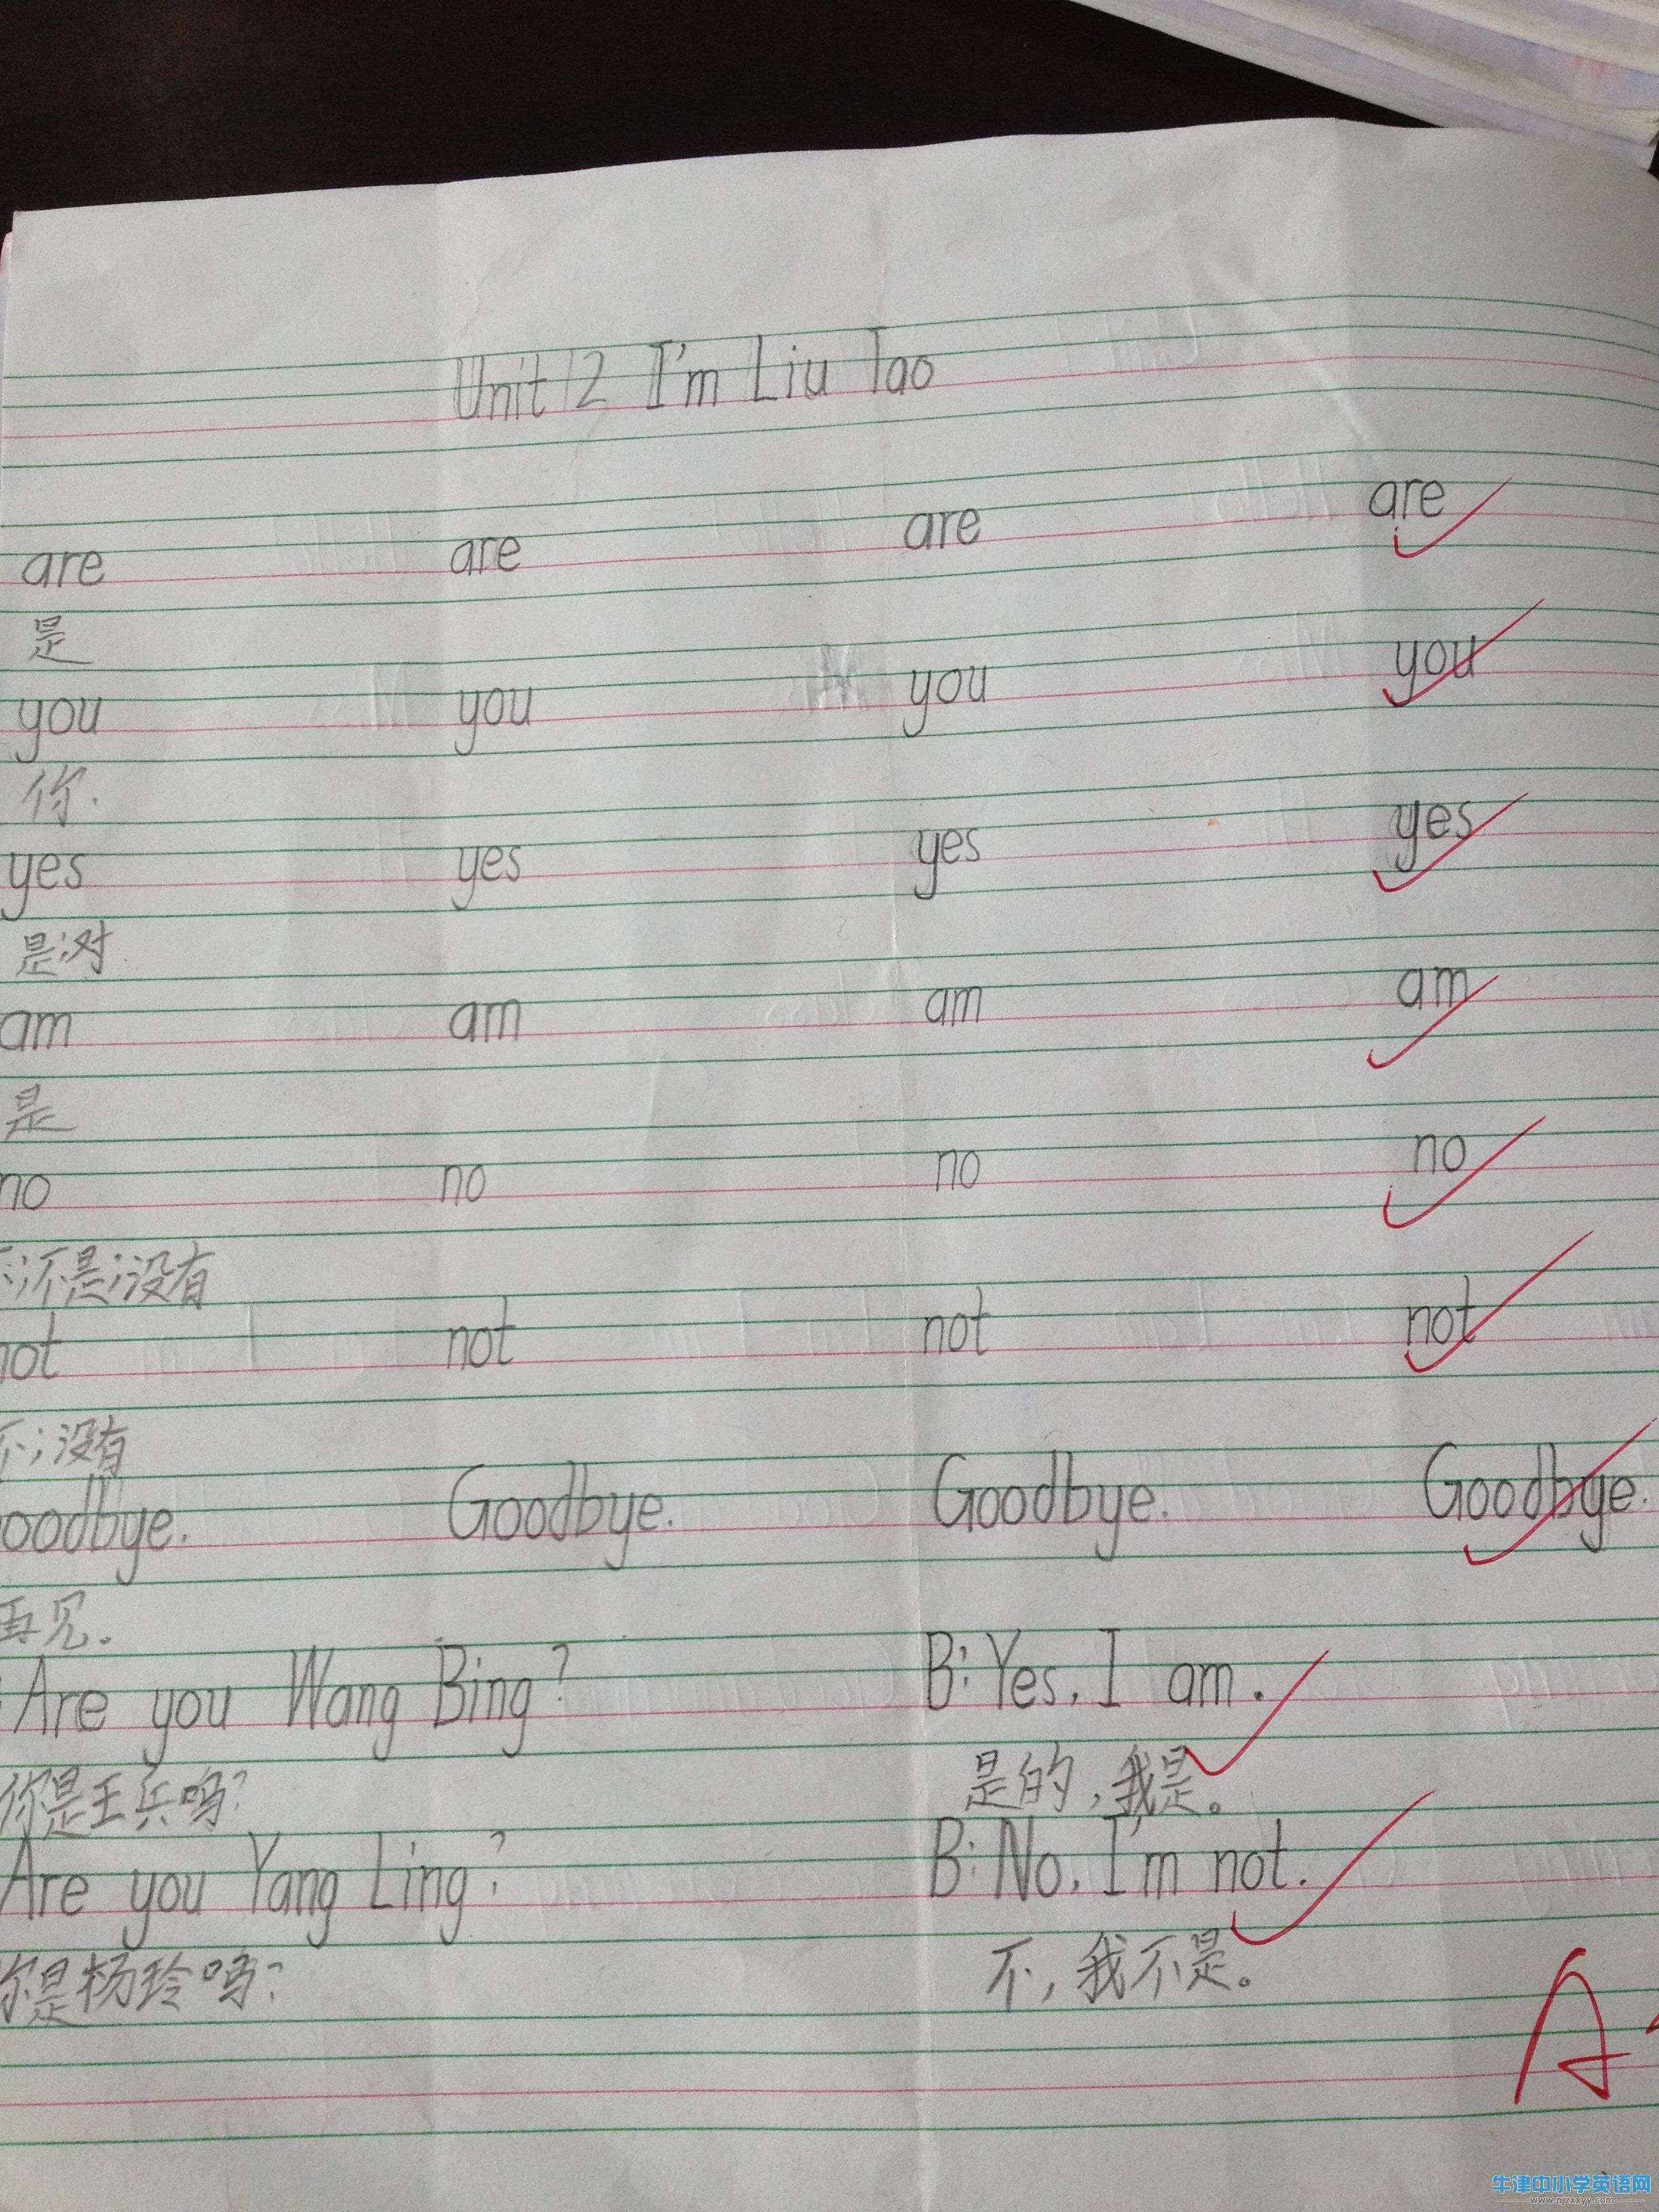 Unit 2 I'm Liu Tao
are are are are
是
you you you you
你.
yes yes yes yes
是;对
am am am am
是
no no no no
;不是;没有
not not not not
不;没有
oodbye. Goodbye. Goodbye. Goodbye.
再见.
: Are you Wang Bing? B: Yes, I am.
你是王兵吗? 是的,我是。
Are you Yang Ling? B: No, I'm not.
你是杨玲吗? 不,我不是。
A
牛津中小学英语网
www.njzxxyy.com